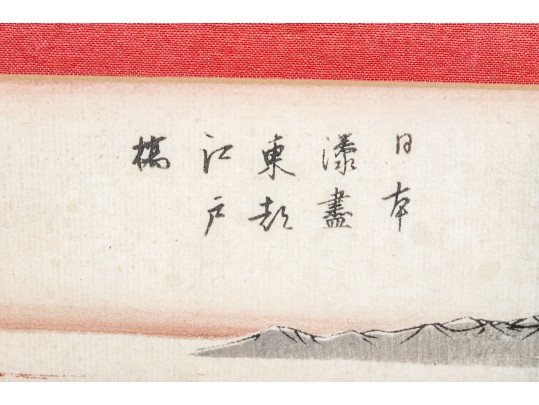 日本
漆畫
東都
江戸
橋